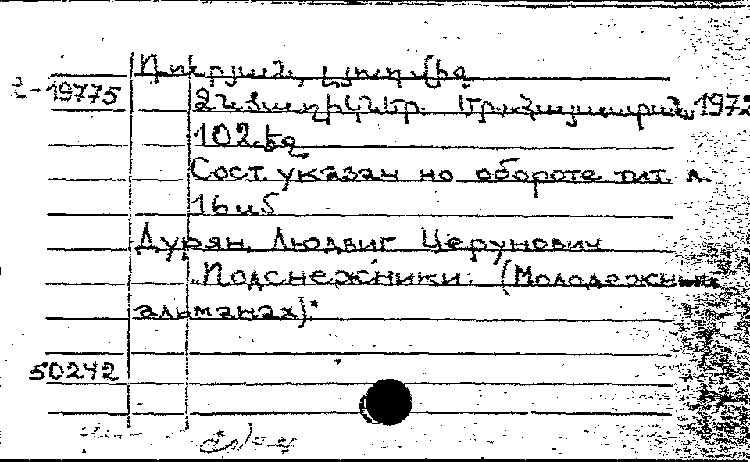 Դուրյան, Լյուդվիգ
2-19775
Ձնծաղիկներ. 1972
102 էջ
Сост. указан на обороте тит. л.
16 и 5
Дурян, Людвиг Церунович
"Подснежники. (Молодежный
альманах)."
50242